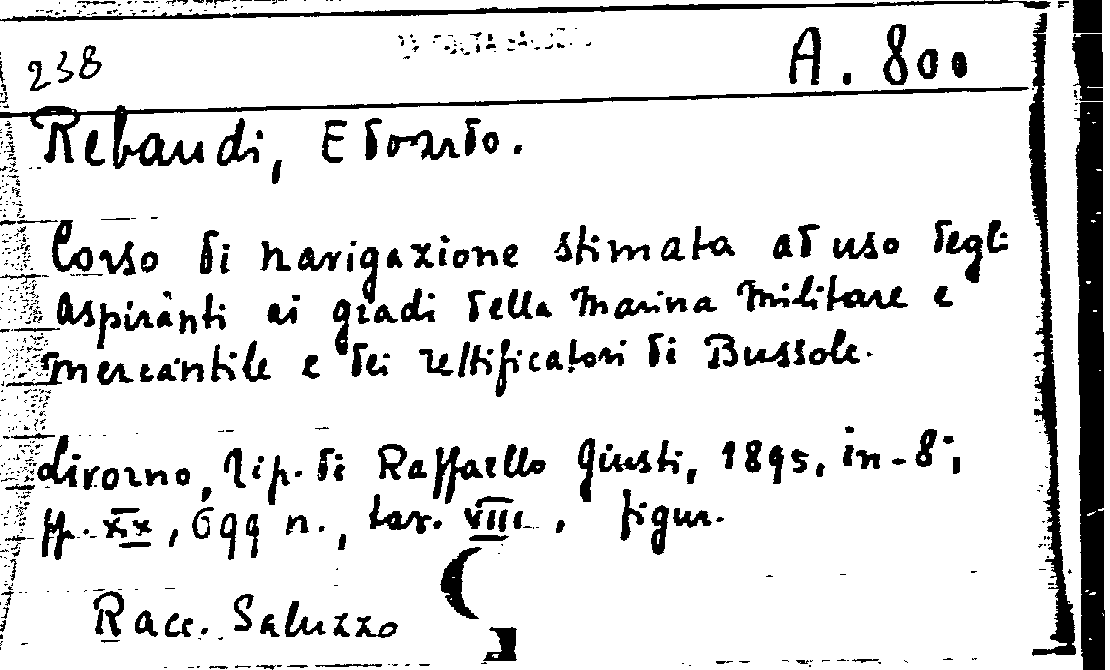 238
RACCOLTA SALUZZO
A. 800
Rebaudi, Edoardo.
Corso di navigazione stimata ad uso degli
aspiranti ai gradi della Marina Militare e
mercantile e dei rettificatori di Bussole.
Livorno, Tip. di Raffaello Giusti, 1895, in-8°,
pp. XX, 699 n., tav. VIII, figur.
Racc. Saluzzo